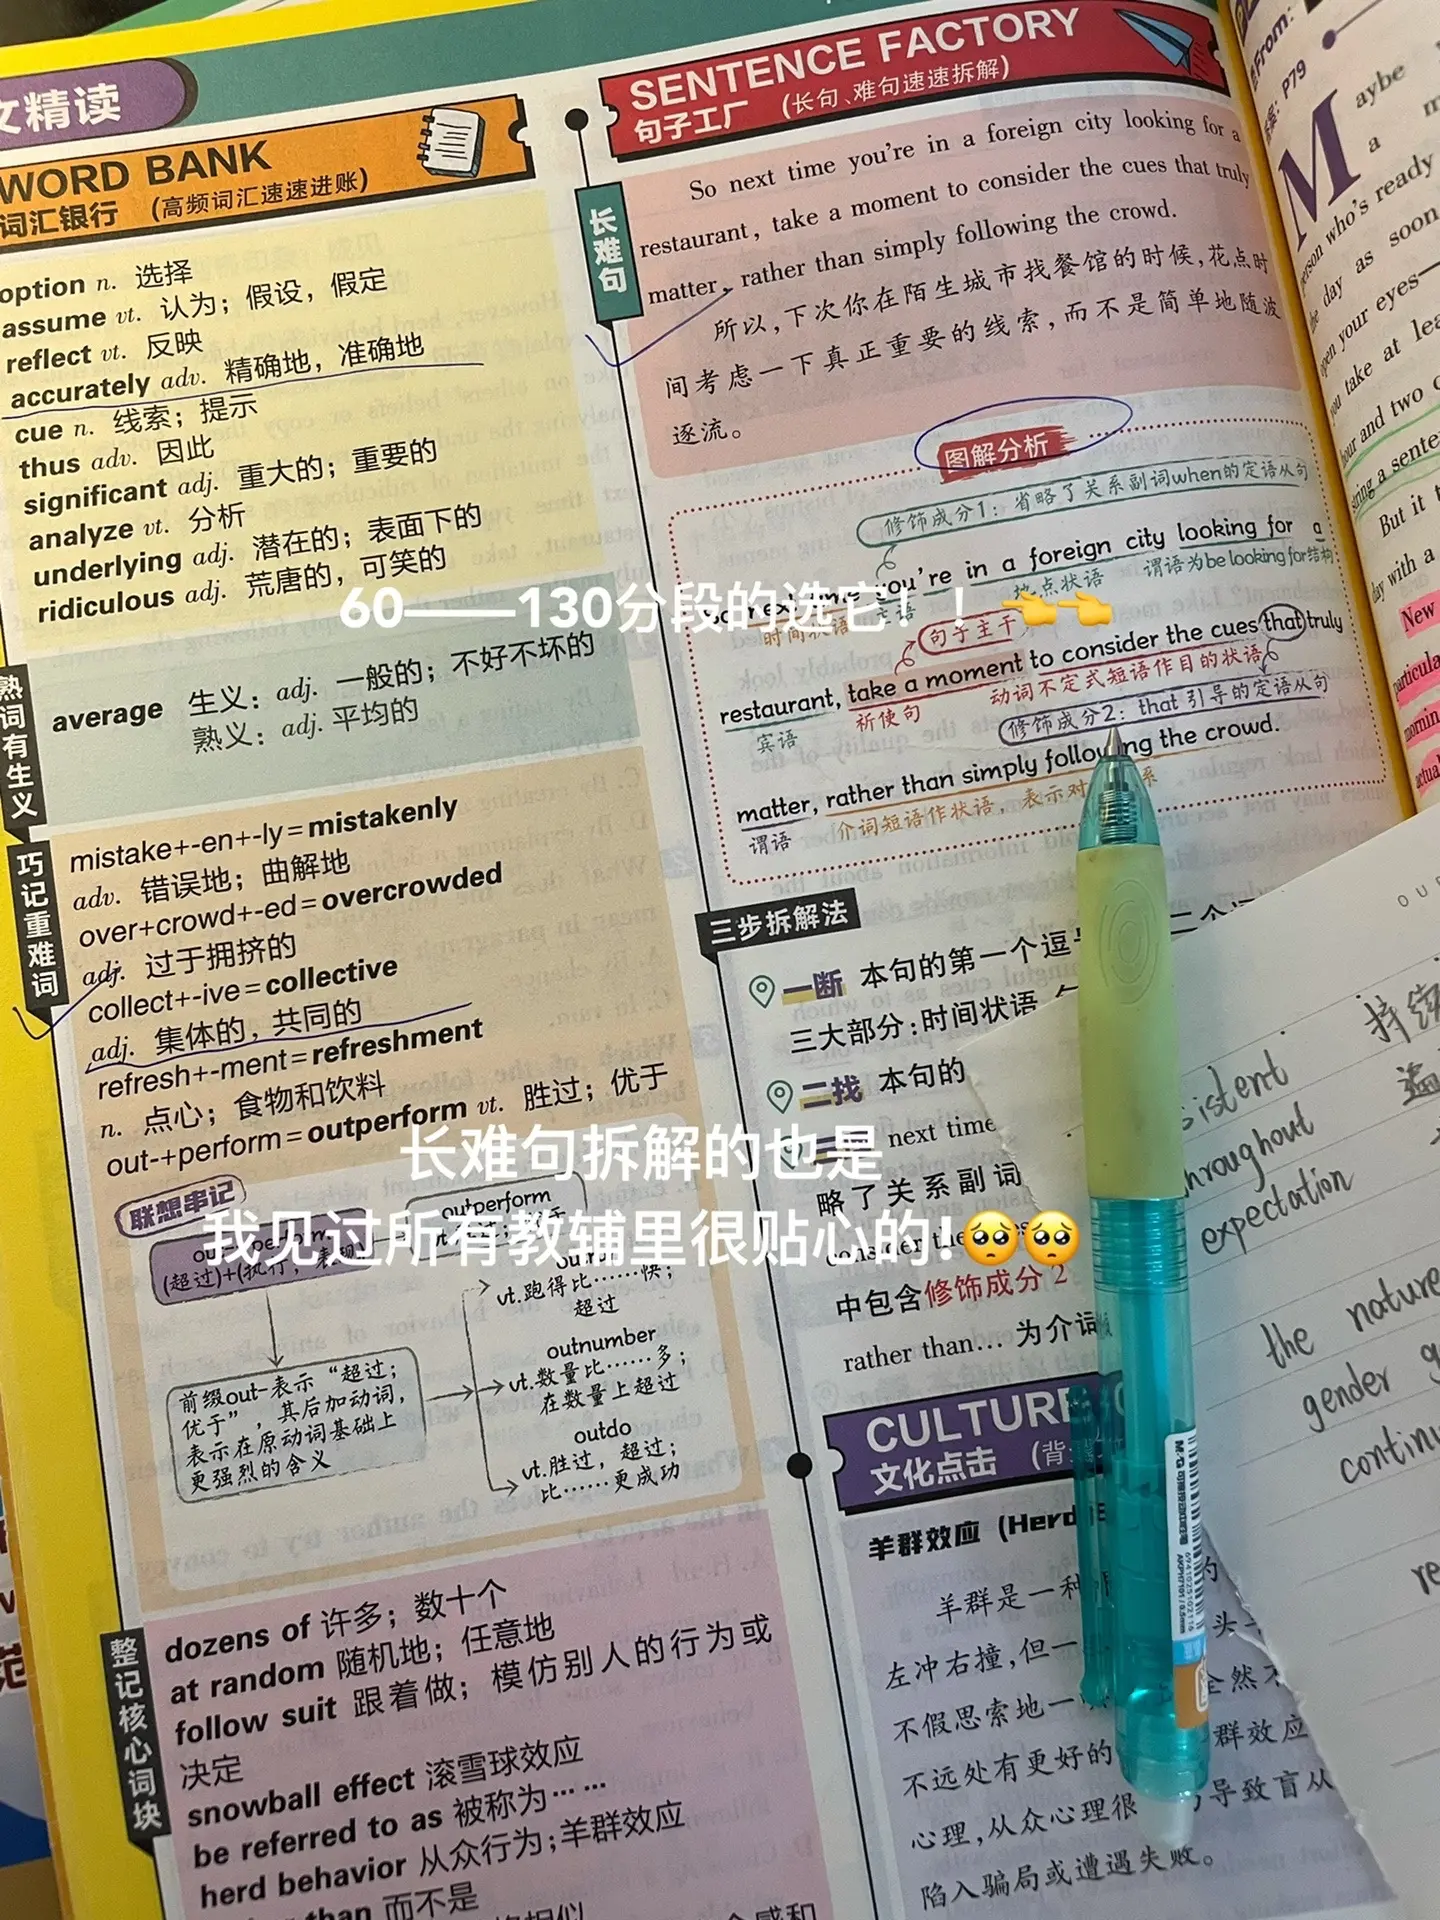 文精读
WORD BANK
词汇银行 (高频词汇速速进账)
option n. 选择
assume vt. 认为；假设，假定
reflect vt. 反映
accurately adv. 精确地，准确地
cue n. 线索；提示
thus adv. 因此
significant adj. 重大的；重要的
analyze vt. 分析
underlying adj. 潜在的；表面下的
ridiculous adj. 荒唐的，可笑的
熟词有生义
average 生义：adj. 一般的；不好不坏的
熟义：adj. 平均的
巧记重难词
mistake+-en+-ly=mistakenly
adv. 错误地；曲解地
over+crowd+-ed=overcrowded
adj. 过于拥挤的
collect+-ive=collective
adj. 集体的，共同的
refresh+-ment=refreshment
n. 点心；食物和饮料
out-+perform=outperform vt. 胜过；优于
联想串记
(超过)+(执行，表现)
outperform
vt.跑得比……快；
超过
outnumber
vt.数量比……多；
在数量上超过
outdo
vt.胜过，超过；
比……更成功
前缀out-表示“超过；
优于”，其后加动词，
表示在原动词基础上
更强烈的含义
整记核心词块
dozens of 许多；数十个
at random 随机地；任意地
follow suit 跟着做；模仿别人的行为或
决定
snowball effect 滚雪球效应
be referred to as 被称为……
herd behavior 从众行为；羊群效应
than 而不是
SENTENCE FACTORY
句子工厂 (长句、难句速速拆解)
长难句
So next time you're in a foreign city looking for a
restaurant, take a moment to consider the cues that truly
matter, rather than simply following the crowd.
所以，下次你在陌生城市找餐馆的时候，花点时
间考虑一下真正重要的线索，而不是简单地随波
逐流。
图解分析
修饰成分1：省略了关系副词when的定语从句
you're in a foreign city looking for a
时间状语 主语 地点状语 谓语为be looking for结构
句子主干
restaurant, take a moment to consider the cues that truly
宾语 祈使句 动词不定式短语作目的状语
修饰成分2：that 引导的定语从句
matter, rather than simply following the crowd.
谓语 介词短语作状语，表示对
三步拆解法
一断 本句的第一个逗
三大部分：时间状语
二找 本句的
next time
略了关系副词
consider the
中包含修饰成分2
rather than… 为介词
CULTURE
文化点击
羊群效应 (Herd
羊群是一种
左冲右撞，但一
不假思索地一 全然不
不远处有更好的 群效应
心理，从众心理很 导致盲从
陷入骗局或遭遇失败。
From:
P79
Maybe
a
person who's ready
the day as soon
open your eyes—
you take at lea
hour and two
string a sente
But it t
day with a
New
particula
mornin
actual
60——130分段的选它！！👈👈
长难句拆解的也是
我见过所有教辅里很贴心的！🥺🥺
持续
sistent
throughout
expectation
the nature
gender g
continu
re
M&G
AKPH7101/0.5mm